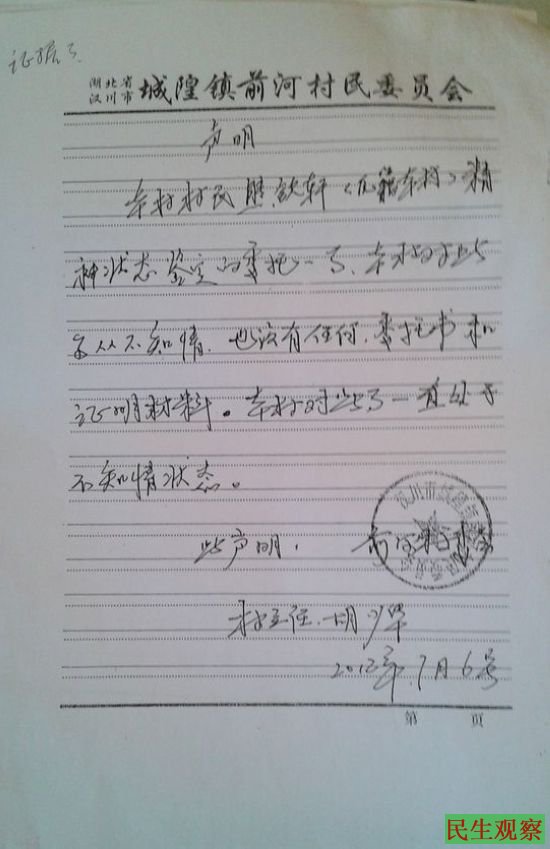 证据3
湖北省
汉川市 城隍镇前河村民委员会
声明
本村村民 (户籍本村) 精
神状态鉴定的委托一事、本村对此
事从不知情.也没有任何.委托书和
证明材料。本村对此事一直处于
不知情状态。
此声明. 前河村
村主任.胡
2012年7月6号
第 页
民生观察